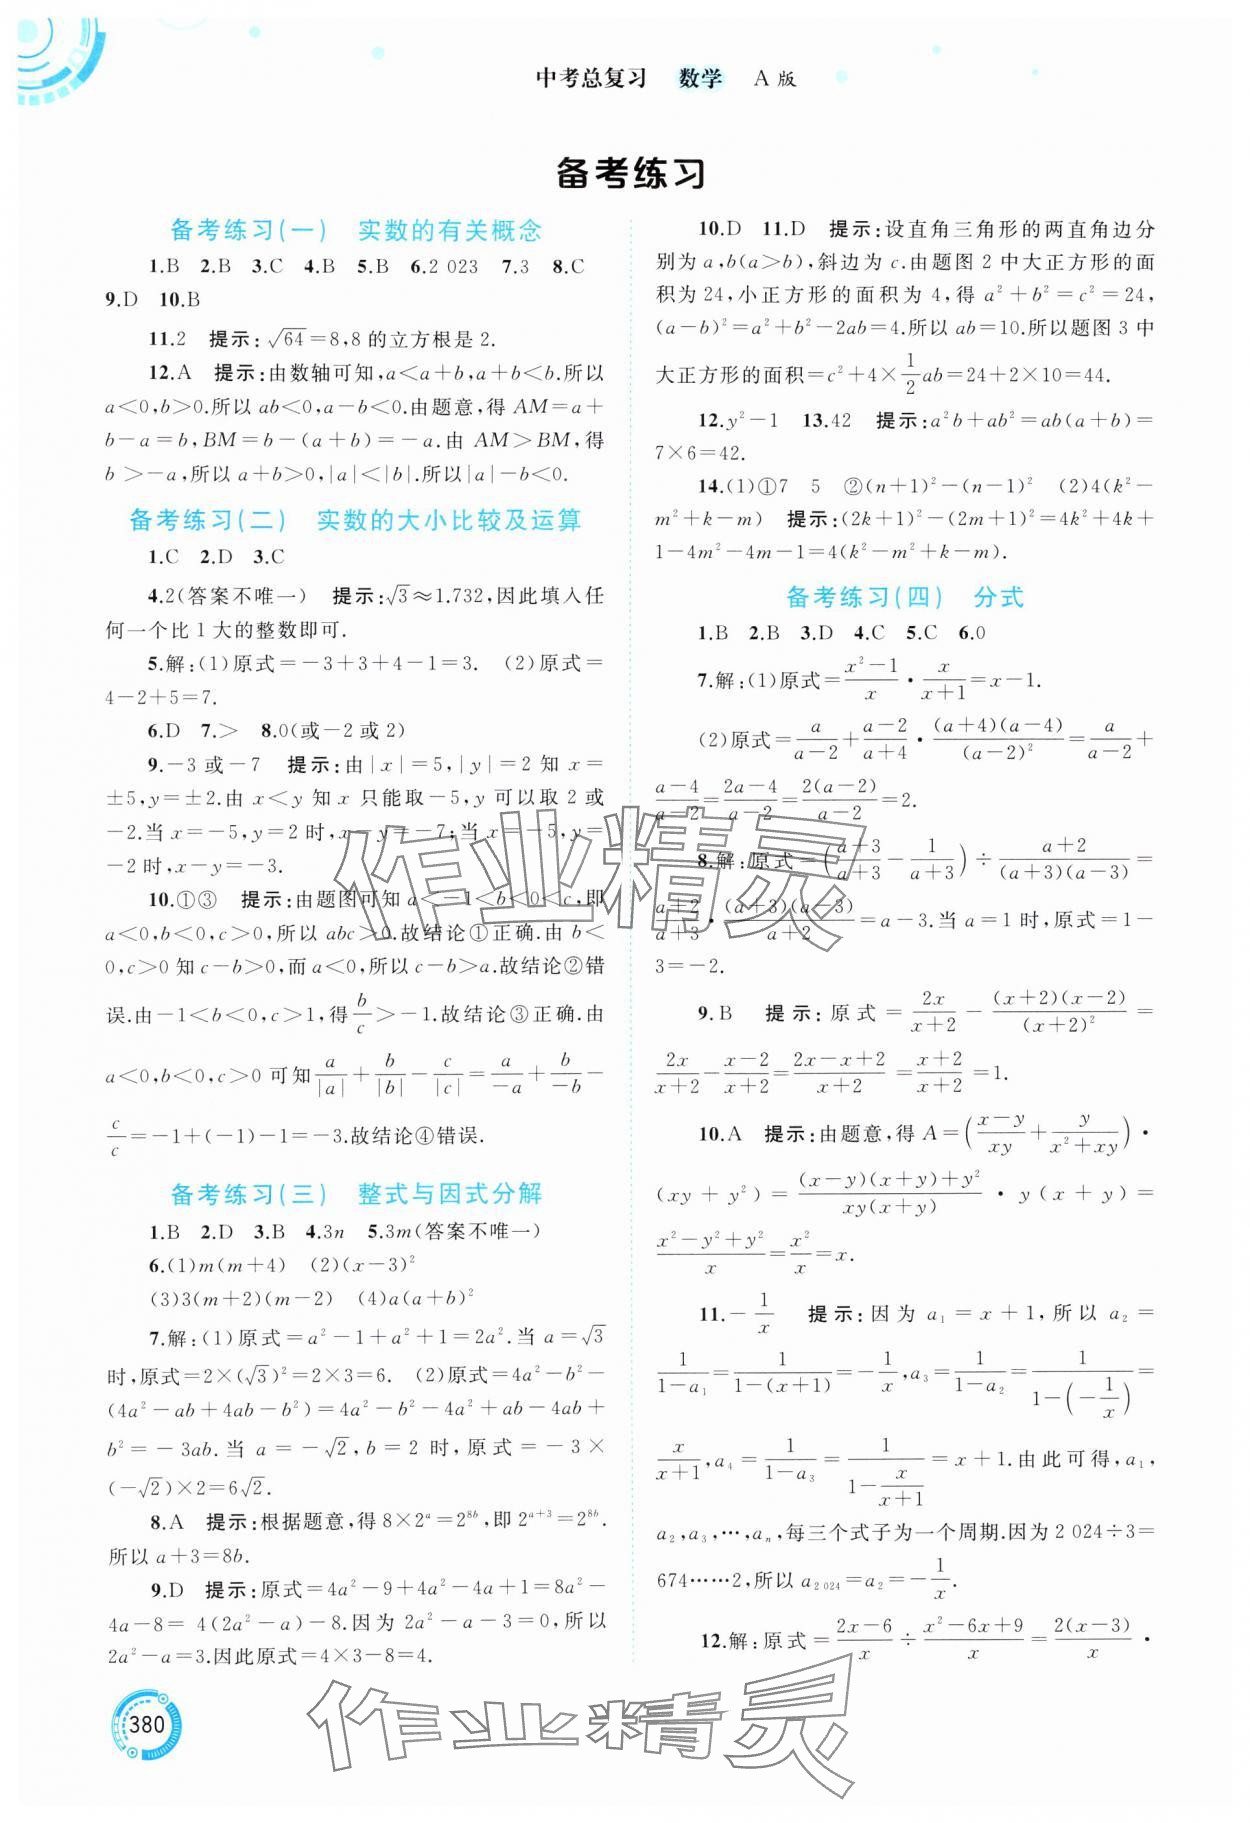 中考总复习 数学 A版
备考练习
备考练习(一) 实数的有关概念
1.B 2.B 3.C 4.B 5.B 6.2 023 7.3 8.C
9.D 10.B
11.2 提示:√64=8,8的立方根是2.
12.A 提示:由数轴可知,a<a+b,a+b<b.所以
a<0,b>0.所以ab<0,a-b<0.由题意,得AM=a+
b-a=b,BM=b-(a+b)=-a.由AM>BM,得
b>-a,所以a+b>0,|a|<|b|.所以|a|-b<0.
备考练习(二) 实数的大小比较及运算
1.C 2.D 3.C
4.2(答案不唯一) 提示:√3≈1.732,因此填入任
何一个比1大的整数即可.
5.解:(1)原式=-3+3+4-1=3. (2)原式=
4-2+5=7.
6.D 7.> 8.0(或-2或2)
9.-3或-7 提示:由|x|=5,|y|=2知x=
±5,y=±2.由x<y知x只能取-5,y可以取2或
-2.当x=-5,y=2时,x-y=-7;当x=-5,y=
-2时,x-y=-3.
10.①③ 提示:由题图可知a<-1<b<0<c,即
a<0,b<0,c>0,所以abc>0.故结论①正确.由b<
0,c>0知c-b>0,而a<0,所以c-b>a.故结论②错
误.由-1<b<0,c>1,得b/c>-1.故结论③正确.由
a<0,b<0,c>0可知a/|a|+b/|b|-c/|c|=a/-a+b/-b-
c/c=-1+(-1)-1=-3.故结论④错误.
备考练习(三) 整式与因式分解
1.B 2.D 3.B 4.3n 5.3m(答案不唯一)
6.(1)m(m+4) (2)(x-3)²
(3)3(m+2)(m-2) (4)a(a+b)²
7.解:(1)原式=a²-1+a²+1=2a².当a=√3
时,原式=2×(√3)²=2×3=6. (2)原式=4a²-b²-
(4a²-ab+4ab-b²)=4a²-b²-4a²+ab-4ab+
b²=-3ab.当a=-√2,b=2时,原式=-3×
(-√2)×2=6√2.
8.A 提示:根据题意,得8×2ᵃ=2⁸ᵇ,即2ᵃ⁺³=2⁸ᵇ.
所以a+3=8b.
9.D 提示:原式=4a²-9+4a²-4a+1=8a²-
4a-8=4(2a²-a)-8.因为2a²-a-3=0,所以
2a²-a=3.因此原式=4×3-8=4.
10.D 11.D 提示:设直角三角形的两直角边分
别为a,b(a>b),斜边为c.由题图2中大正方形的面
积为24,小正方形的面积为4,得a²+b²=c²=24,
(a-b)²=a²+b²-2ab=4.所以ab=10.所以题图3中
大正方形的面积=c²+4×1/2ab=24+2×10=44.
12.y²-1 13.42 提示:a²b+ab²=ab(a+b)=
7×6=42.
14.(1)①7 5 ②(n+1)²-(n-1)² (2)4(k²-
m²+k-m) 提示:(2k+1)²-(2m+1)²=4k²+4k+
1-4m²-4m-1=4(k²-m²+k-m).
备考练习(四) 分式
1.B 2.B 3.D 4.C 5.C 6.0
7.解:(1)原式=(x²-1)/x·x/(x+1)=x-1.
(2)原式=a/(a-2)+(a-2)/(a+4)·(a+4)(a-4)/(a-2)²=a/(a-2)+
(a-4)/(a-2)=(2a-4)/(a-2)=2(a-2)/(a-2)=2.
8.解:原式=((a+3)/(a+3)-1/(a+3))÷(a+2)/((a+3)(a-3))=
(a+2)/(a+3)·(a+3)(a-3)/(a+2)=a-3.当a=1时,原式=1-
3=-2.
9.B 提示:原式=2x/(x+2)-(x+2)(x-2)/(x+2)²=
2x/(x+2)-(x-2)/(x+2)=(2x-x+2)/(x+2)=(x+2)/(x+2)=1.
10.A 提示:由题意,得A=((x-y)/xy+y/(x²+xy))·
(xy+y²)=((x-y)(x+y)+y²)/(xy(x+y))·y(x+y)=
(x²-y²+y²)/x=x²/x=x.
11.-1/x 提示:因为a₁=x+1,所以a₂=
1/(1-a₁)=1/(1-(x+1))=-1/x,a₃=1/(1-a₂)=1/(1-(-1/x))=
x/(x+1),a₄=1/(1-a₃)=1/(1-x/(x+1))=x+1.由此可得,a₁,
a₂,a₃,…,aₙ,每三个式子为一个周期.因为2 024÷3=
674……2,所以a₂ ₀₂₄=a₂=-1/x.
12.解:原式=(2x-6)/x÷(x²-6x+9)/x=2(x-3)/x·
作业精灵
作业精灵
380